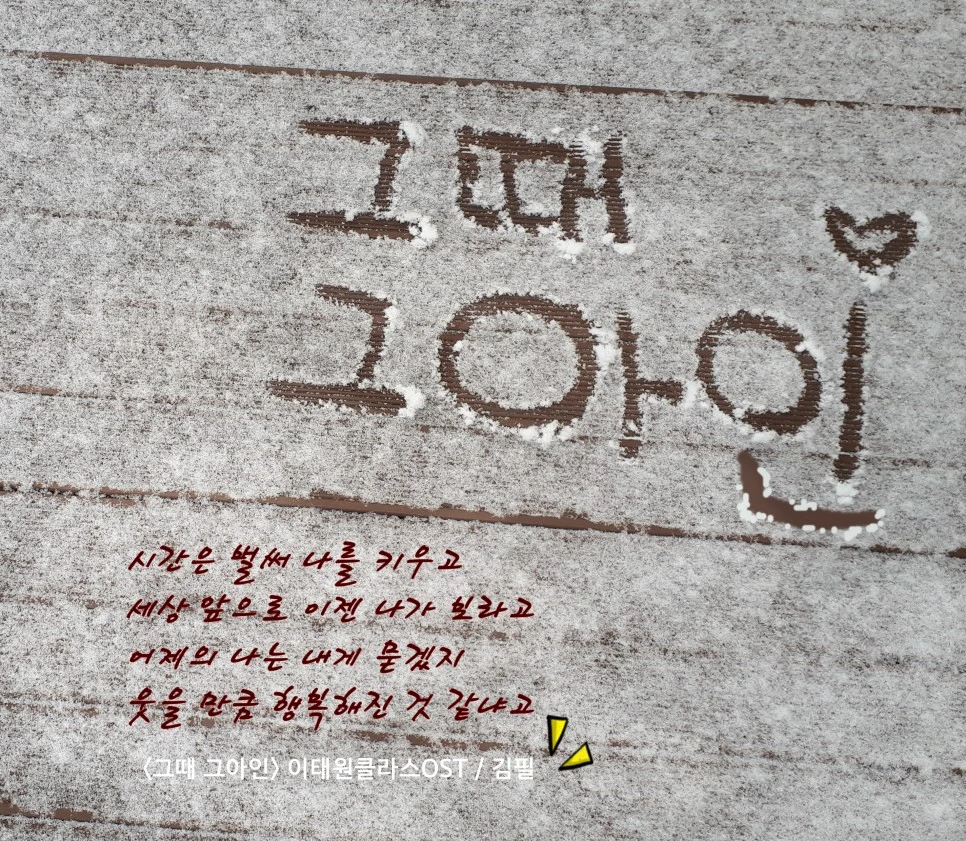 그때
그아인
시간은 벌써 나를 키우고
세상 앞으로 이젠 나가 보라고
어제의 나는 내게 묻겠지
웃을 만큼 행복해진 것 같냐고
<그때 그아인> 이태원클라스OST / 김필